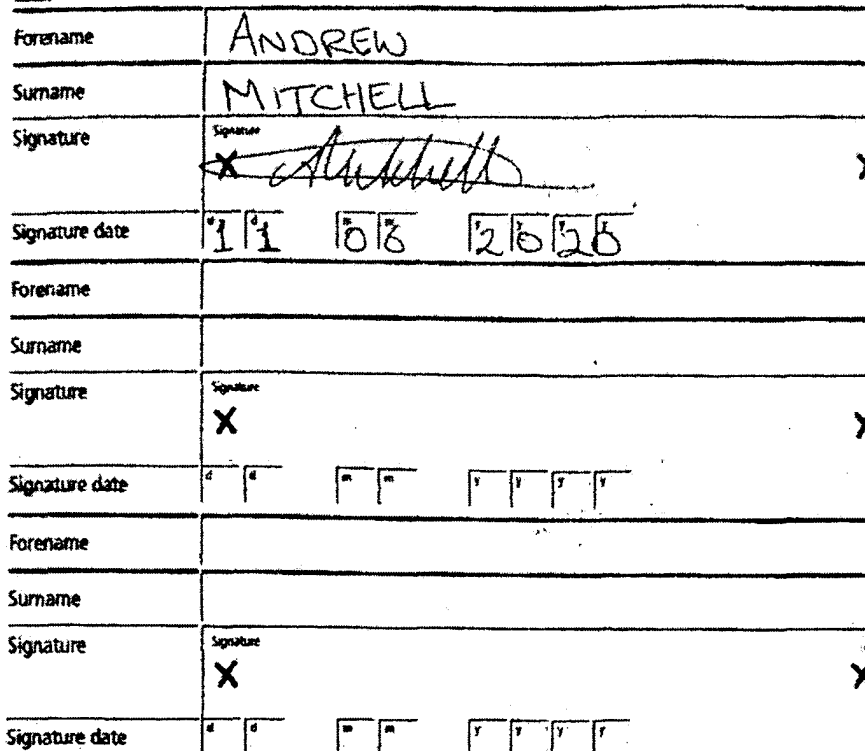 Forename ANDREW
Surname MITCHELL
Signature Signature
X AMitchell X
Signature date d 1 d 1 m 0 m 6 y 2 y 0 y 2 y 0
Forename
Surname
Signature Signature
X X
Signature date d d m m y y y y
Forename
Surname
Signature Signature
X X
Signature date d d m m y y y y